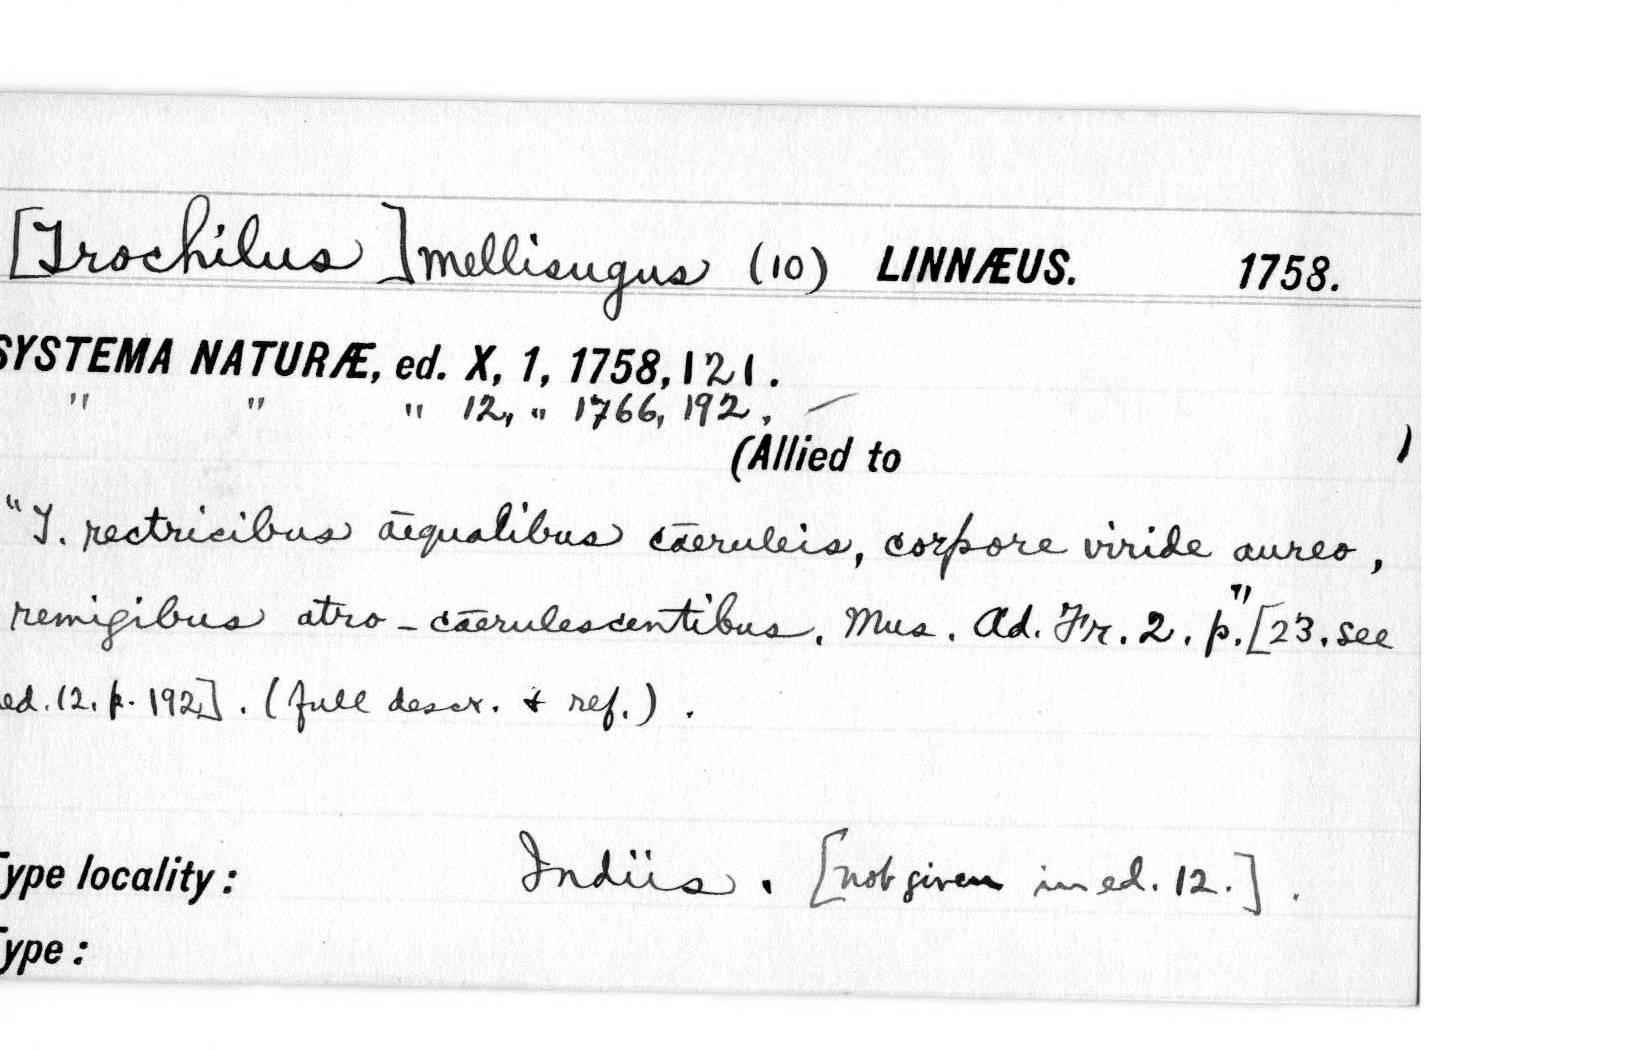 [Trochilus ] mellisugus (10) LINNÆUS. 1758.
SYSTEMA NATURÆ, ed. X, 1, 1758, 121.
" " " 12, " 1766, 192, —
(Allied to )
"T. rectricibus aequalibus caeruleis, corpore viride aureo,
remigibus atro-caerulescentibus. Mus. Ad. Fr. 2. p." [23. see
ed. 12. p. 192]. (full descr. & ref.) .
Type locality: Indiis. [not given in ed. 12.] .
Type: